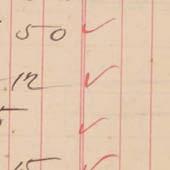 50 ✓
12 ✓
✓
15 ✓